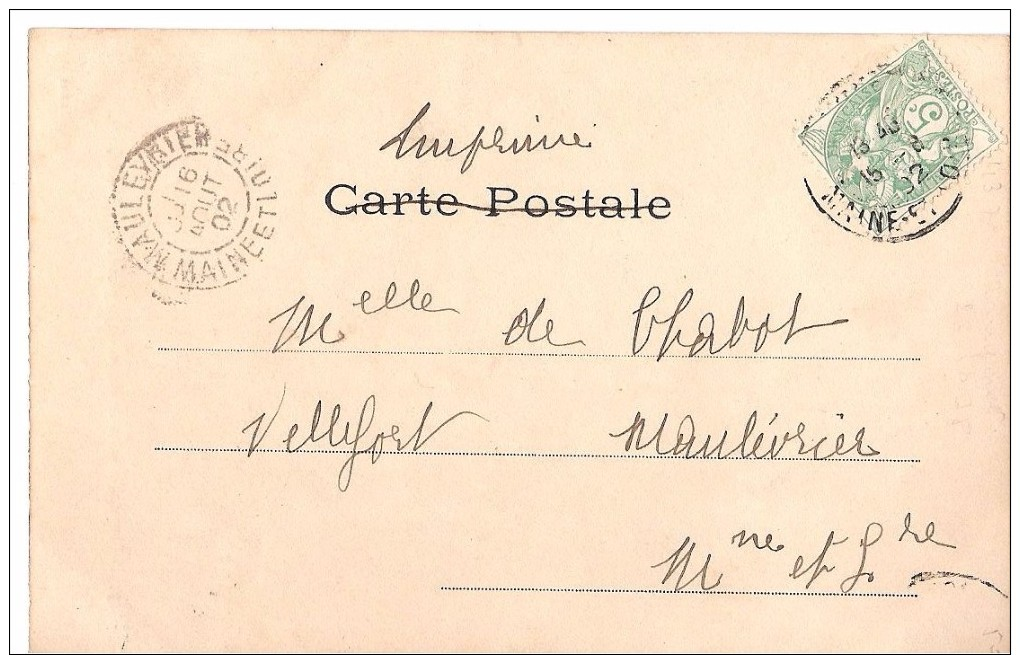 Imprimé
Carte Postale
MAULEVRIER
16
AOUT
02
MAINE ET LOIRE
5
POSTES
15
02
MAINE-ET-LOIRE
Melle de Chabot
Maulévrier
Mne et Lre